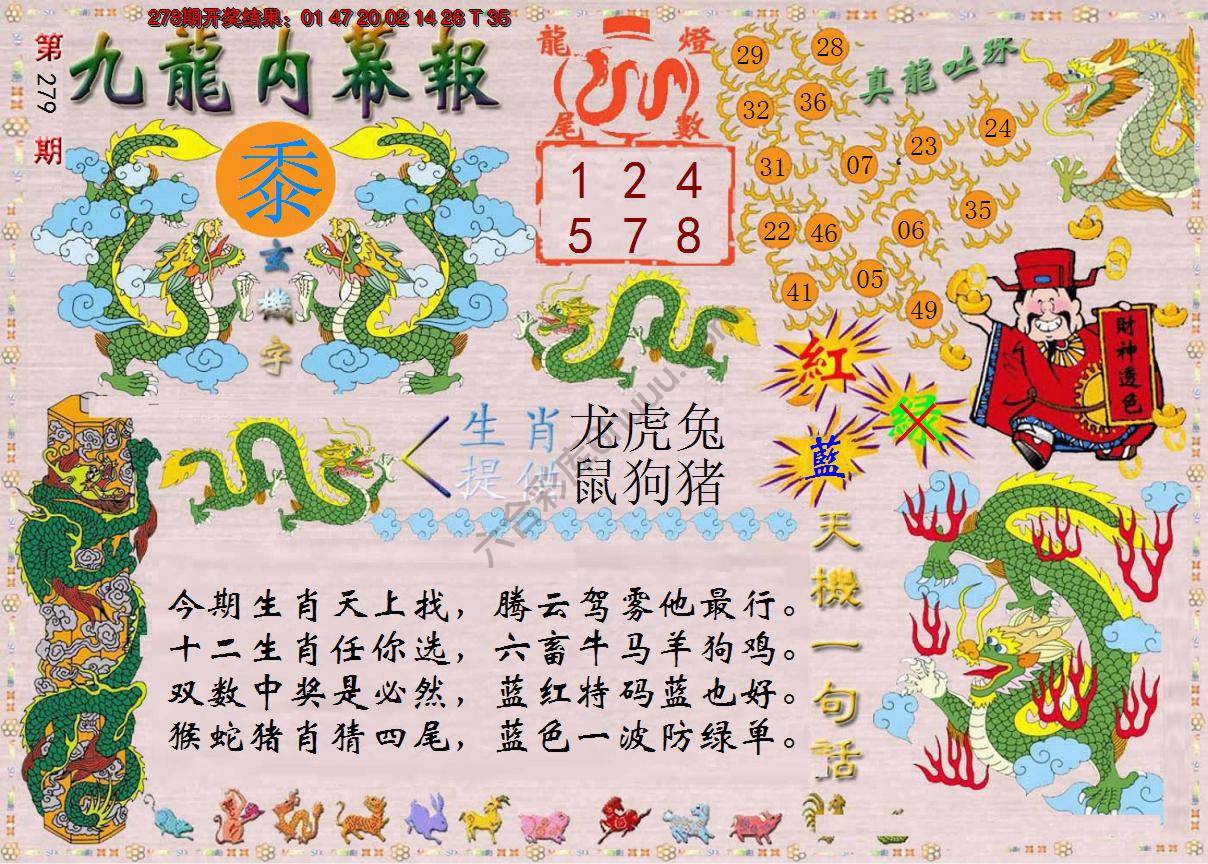 278期开奖结果：01 47 20 02 14 26 T 35
第279期
九龍内幕報
黍
玄機字
龍燈
尾數
1 2 4
5 7 8
真龍吐珠
29 28
32 36
31 07 23 24
22 46 06 35
41 05 49
財神透色
紅
绿
藍
生肖提供
龙虎兔
鼠狗猪
天機一句话
今期生肖天上找，腾云驾雾他最行。
十二生肖任你选，六畜牛马羊狗鸡。
双数中奖是必然，蓝红特码蓝也好。
猴蛇猪肖猜四尾，蓝色一波防绿单。